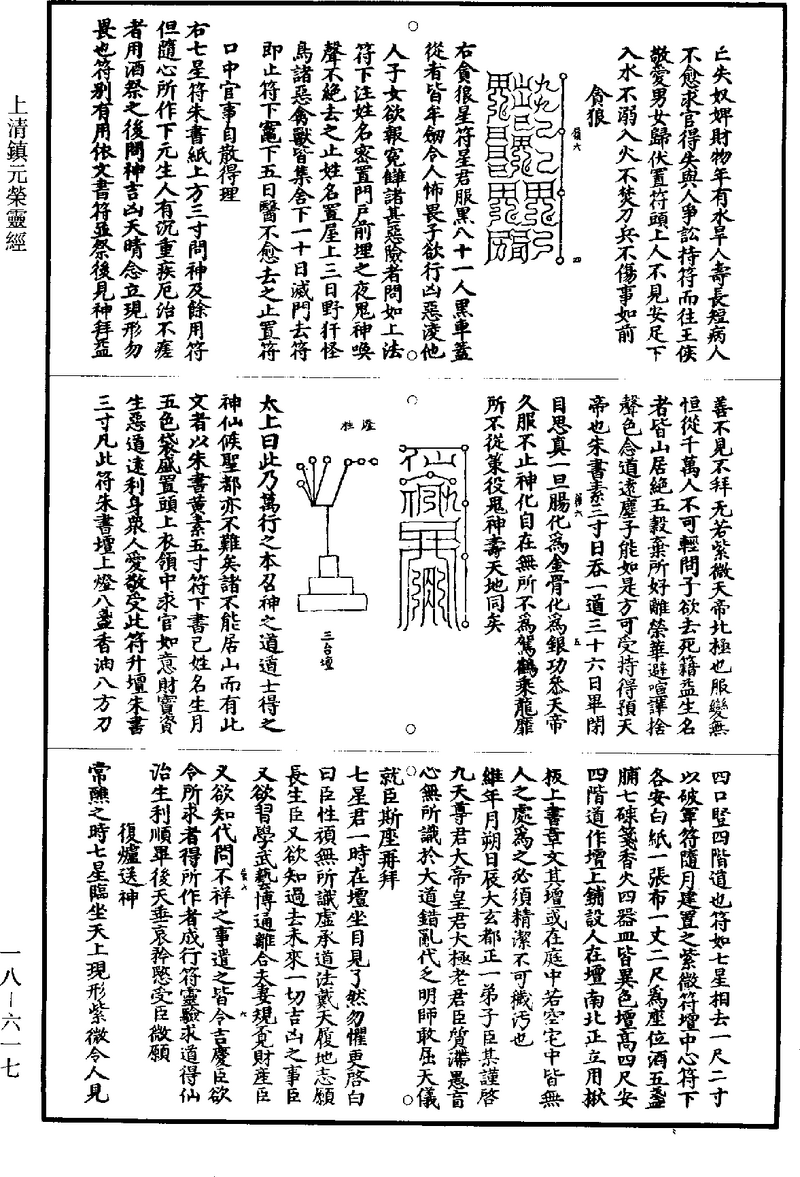 上清鎮元榮靈經
一八—六一七
亡失奴婢財物年有水旱人壽長短病人
不愈求官得失與人爭訟持符而往王侯
敬愛男女歸伏置符頭上人不見安足下
入水不溺入火不焚刀兵不傷事如前
貪狼
右貪狼星符星君服黑八十一人黑車蓋
從者皆牟劒令人怖畏子欲行凶惡淩他
人子女欲報寃讎諸甚惡險者問如上法
符下注姓名密置門戶前埋之夜鬼神喚
聲不絕去之止姓名置屋上三日野犴怪
鳥諸惡禽獸皆集舍下一十日滅門去符
即止符下竈下五日醫不愈去之止置符
口中官事自散得理
右七星符朱書紙上方三寸問神及餘用符
但隨心所作下元生人有沉重疾厄治不瘥
者用酒祭之後問神吉凶天晴念立現形勿
畏也符別有用依文書符並祭後見神拜益
善不見不拜无若紫微天帝北極也服變無
恒從千萬人不可輕問子欲去死籍益生名
者皆山居絕五穀棄所好離榮華避喧譁捨
聲色念道遠塵子能如是方可受持得預天
帝也朱書素三寸日吞一道三十六日畢閉
目思真一旦腸化為金骨化為銀功叅天帝
久服不止神化自在無所不為駕鶴乘龍靡
所不從策役鬼神壽天地同矣
三台壇
太上曰此乃萬行之本召神之道道士得之
神仙候聖都亦不難矣諸不能居山而有此
文者以朱書黃素五寸符下書己姓名生月
五色袋盛置頭上衣領中求官如意財寶資
生惡道遠利身眾人愛敬受此符升壇朱書
三寸凡此符朱書壇上燈八盞香油八方刀
四口豎四階道也符如七星相去一尺二寸
以破軍符隨月建置之紫微符壇中心符下
各安白紙一張布一丈二尺為座位酒五盞
脯七碟箋香火四器皿皆異色壇高四尺安
四階道作壇上鋪設人在壇南北正立用楸
板上書章文其壇或在庭中若空宅中皆無
人之處為之必須精潔不可穢污也
維年月朔日辰大玄都正一弟子臣某謹啓
九天尊君大帝皇君大極老君臣質滯愚盲
心無所識於大道錯亂代乏明師敢屈天儀
就臣斯座再拜
七星君一時在壇坐目見了然勿懼更啓白
曰臣性頑無所識虛承道法戴天履地志願
長生臣又欲知過去未來一切吉凶之事臣
又欲習學武藝博通離合夫妻規覓財產臣
又欲知代問不祥之事遣之皆令吉慶臣欲
令所求者得所作者成行符靈驗求道得仙
治生利順畢後天垂哀矜愍受臣微願
復爐送神
常醮之時七星臨坐天上現形紫微令人見